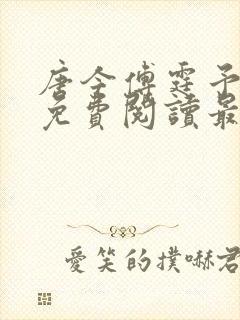 唐今傅霆予
免費閱讀最
愛笑的撲嚇君